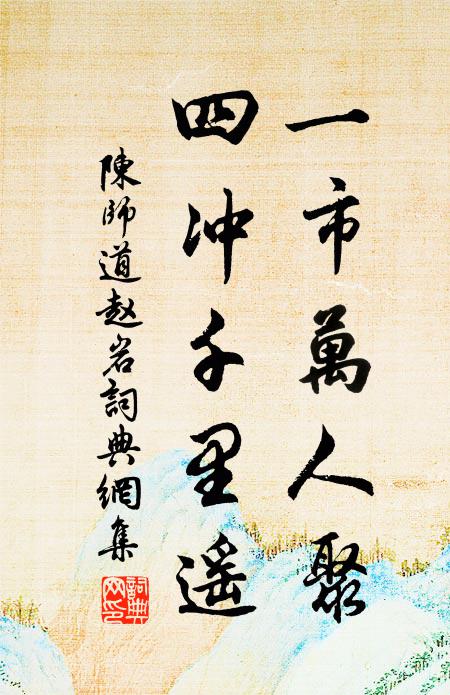 一市萬人聚
四冲千里遥
陳師道赵岩詞典網集
詞典